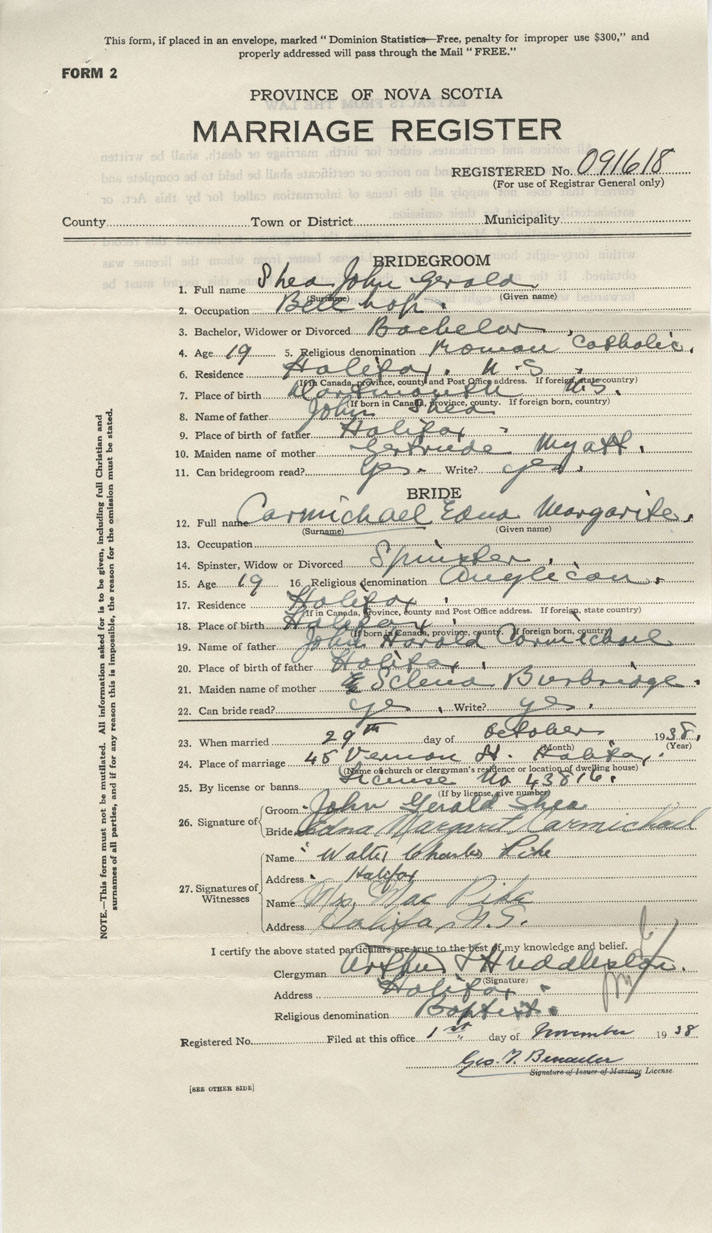 This form, if placed in an envelope, marked "Dominion Statistics—Free, penalty for improper use $300," and
properly addressed will pass through the Mail "FREE."
FORM 2
PROVINCE OF NOVA SCOTIA
MARRIAGE REGISTER
REGISTERED No. 091618
(For use of Registrar General only)
County Town or District Municipality
BRIDEGROOM
1. Full name Shea John Gerald
(Surname) (Given name)
2. Occupation Bell hop.
3. Bachelor, Widower or Divorced Bachelor
4. Age 19 5. Religious denomination Roman Catholic.
6. Residence Halifax. N.S.
(If in Canada, province, county and Post Office address. If foreign, state country)
7. Place of birth Dartmouth N.S.
(If born in Canada, province, county. If foreign born, country)
8. Name of father John Shea
9. Place of father Halifax
10. Maiden name of mother Gertrude Myatt.
11. Can bridegroom read? Yes. Write? yes.
BRIDE
12. Full name Carmichael Edna Margarite.
(Surname) (Given name)
13. Occupation
14. Spinster, Widow or Divorced Spinster.
15. Age 19 16. Religious denomination Anglican.
17. Residence Halifax.
(If in Canada, province, county and Post Office address. If foreign, state country)
18. Place of birth Halifax.
(If born in Canada, province, county. If foreign born, country)
19. Name of father John Harold Carmichael
20. Place of birth of father Halifax.
21. Maiden name of mother Selena Burbridge.
22. Can bride read? yes. Write? yes.
23. When married 29th day of October 1938.
(Month) (Year)
24. Place of marriage 45 Vernon St. Halifax.
(Name of church or clergyman's residence or location of dwelling house)
25. By license or banns License No 43816.
(If by license, give number)
26. Signature of Groom John Gerald Shea
Bride Edna Margaret Carmichael
27. Signatures of Witnesses
Name Walter Charles Pike
Address Halifax
Name Mrs. Mae Pike
Address Halifax, N.S.
I certify the above stated particulars are true to the best of my knowledge and belief.
Clergyman Arthur J Huddleston.
(Signature)
Address Halifax.
Religious denomination Baptist.
Registered No. Filed at this office 1st day of November 1938
Geo. T.
Signature of Issuer of Marriage License
[SEE OTHER SIDE]
NOTE.—This form must not be mutilated. All information asked for is to be given, including full Christian and
surnames of all parties, and if for any reason this is impossible, the reason for the omission must be stated.